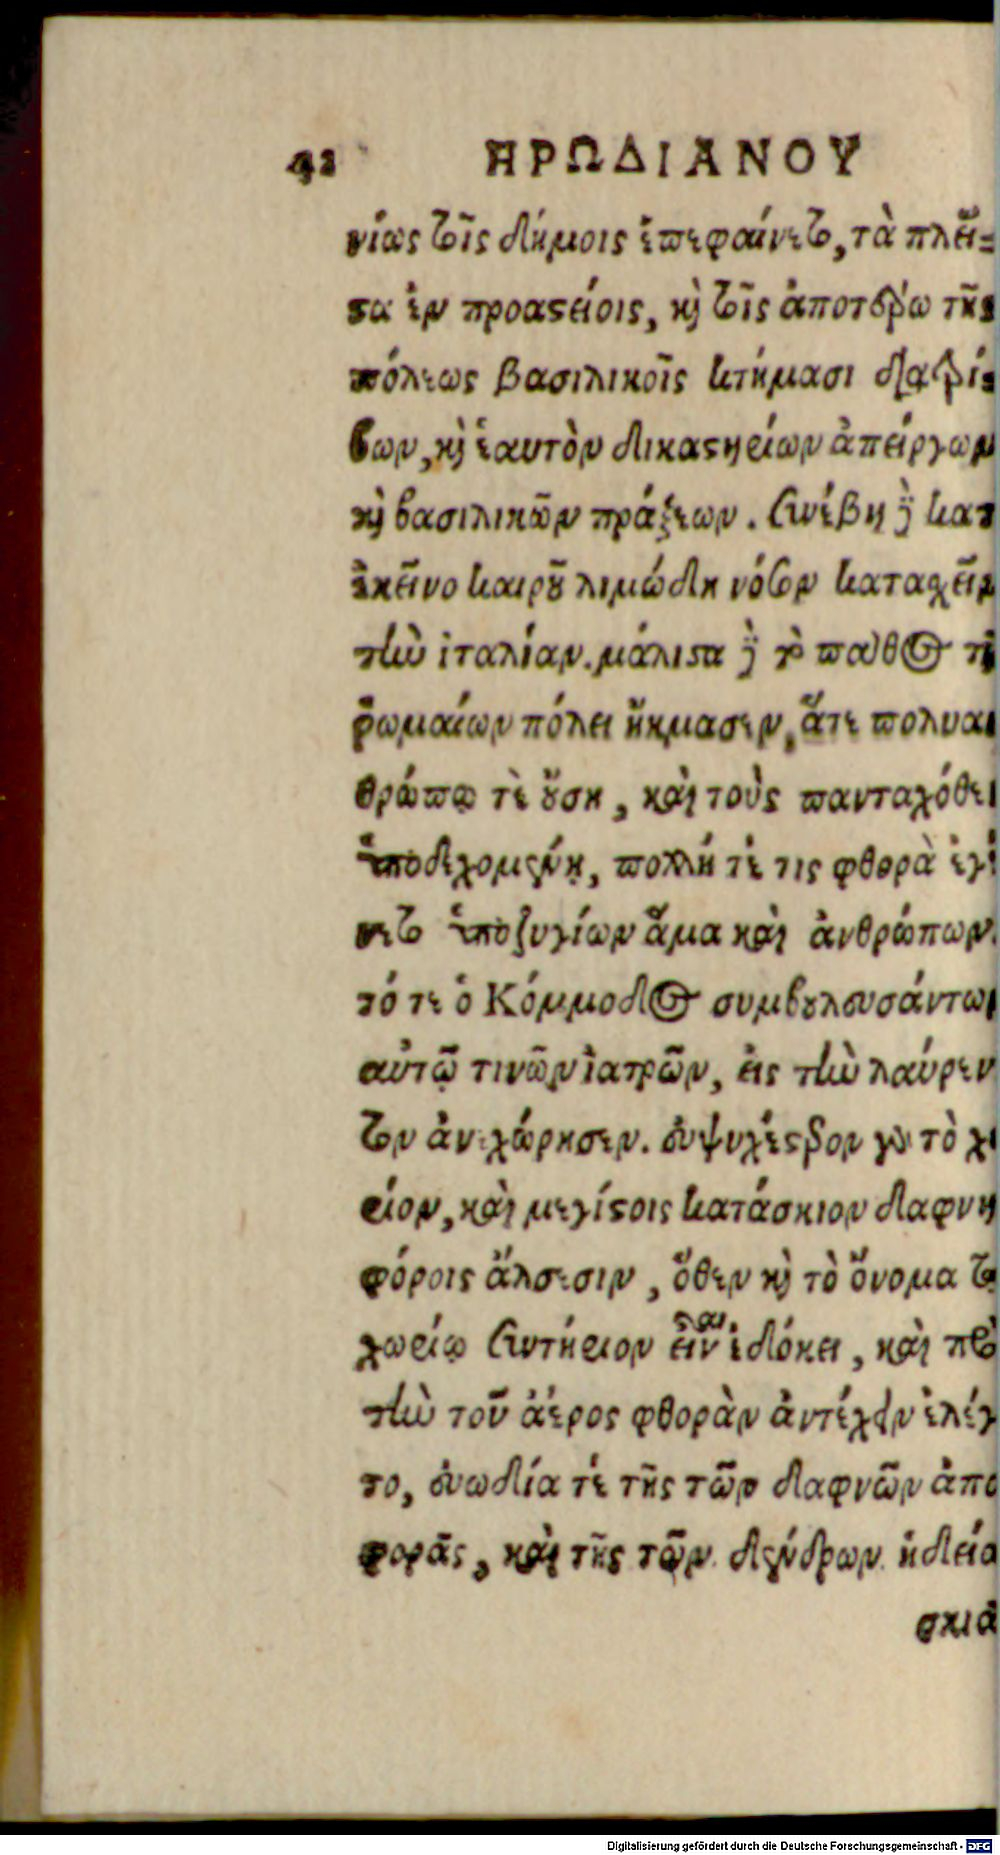 42 ΗΡΩΔΙΑΝΟΥ
νίως τοῖς δήμοις ἐπεφαίνετο, τὰ πλεῖ-
ϛα ἐν προαϛείοις, κὶ τοῖς ἀποτέρω τῆς
πόλεως βασιλικοῖς κτήμασι διατρί-
βων, κὶ ἑαυτὸν δικαϛηρίων ἀπείργων
κὶ βασιλικῶν πράξεων. συνέβη δὲ κατ
ἐκεῖνο καιροῦ λιμώδη νόσον κατασχεῖν
τὴν ἰταλίαν. μάλιϛα δὲ τὸ πάθος τῇ
ῥωμαίων πόλει ἤκμασεν, ἅτε πολυαν
θρώπῳ τὲ οὔσῃ, καὶ τοὺς πανταχόθεν
ὑποδεχομένῃ, πολλή τέ τις φθορὰ ἐγέ
νετο ὑποζυγίων ἅμα καὶ ἀνθρώπων.
τό τε ὁ Κόμμοδος συμβουλευσάντων
αὐτῷ τινῶν ἰατρῶν, εἰς τὴν λαύρεν
τον ἀνεχώρησεν. εὐψυχέϛερον γὰρ τὸ χω
ρίον, καὶ μεγίϛοις κατάσκιον δαφνη
φόροις ἄλσεσιν, ὅθεν κὶ τὸ ὄνομα τῷ
χωρίῳ σωτήριον εἶναι ἐδόκει, καὶ πρὸς
τὴν τοῦ ἀέρος φθορὰν ἀντέχειν ἐλέγε
το, εὐωδία τέ τῆς τῶν δαφνῶν ἀπο
φορᾶς, καὶ τῆς τῶν δένδρων ἡδεία
σκιᾶ
Digitalisierung gefördert durch die Deutsche Forschungsgemeinschaft - DFG